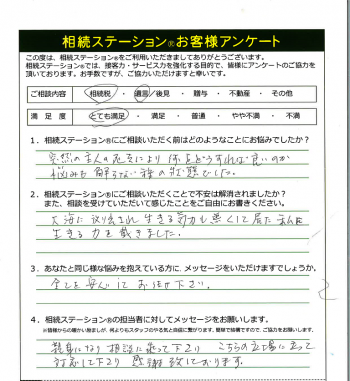 相続ステーション®お客様アンケート
この度は、相続ステーション®をご利用いただきましてありがとうございます。
相続ステーション®では、接客力・サービス力を強化する目的で、皆様にアンケートのご協力を
頂いております。お手数ですが、ご協力いただけますと幸いです。
ご相談内容 相続税 ・ 遺言／後見 ・ 贈与 ・ 不動産 ・ その他
満 足 度 とても満足 ・ 満足 ・ 普通 ・ やや不満 ・ 不満
1．相続ステーション®にご相談いただく前はどのようなことにお悩みでしたか？
突然の主人の死去により 何をどうすれば良いのか
悩みも 解らない 程の状態でした。
2．相続ステーション®にご相談いただくことで不安は解消されましたか？
また、相談を受けていただいて感じたことをご自由にお書きください。
大海に放り出され 生きる気力も無くして居た私に
生きる力を戴きました。
3．あなたと同じ様な悩みを抱えている方に、メッセージをいただけますでしょうか。
全てを安心して お任せ下さい。
4．相続ステーション®の担当者に対してメッセージをお願いします。
※皆様からの暖かい励ましが、何よりもスタッフのやる気と自信に繋がります。簡単で結構ですので、ご協力をお願いします。
親身になり 相談に乗って下さり こちらの立場に立って
対応して下さり 感謝致しております。